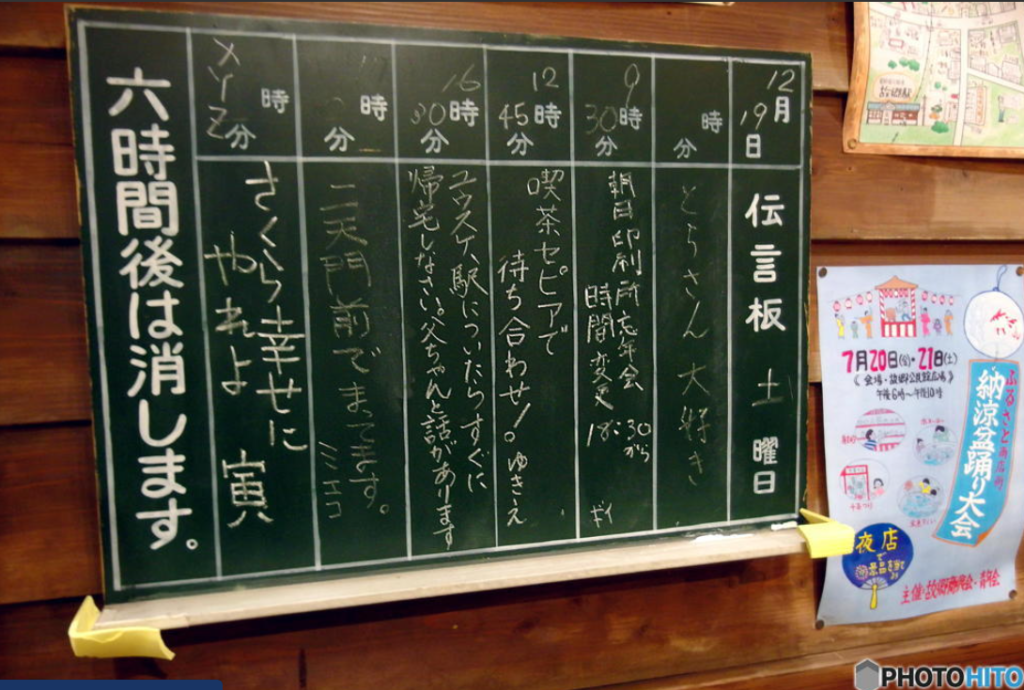 12月
19日
伝言板 土曜日
時
分
とらさん大好き
9時
30分
朝日印刷所忘年会
時間変更 18:30から
12時
45分
喫茶セピアで
待ち合わせ!。ゆきえ
16時
30分
ユウスケ、駅についたらすぐに
帰宅しなさい。父ちゃんと話があります
時
分
二天門前でまってます。ミエコ
時
分
さくら幸せに
やれよ 寅
六時間後は消します。
7月20日(金)・21日(土)
《会場・故郷公民館広場》
ふるさと商店街
納涼盆踊り大会
夜店
主催・故郷商店会・青年会
PHOTOHITO